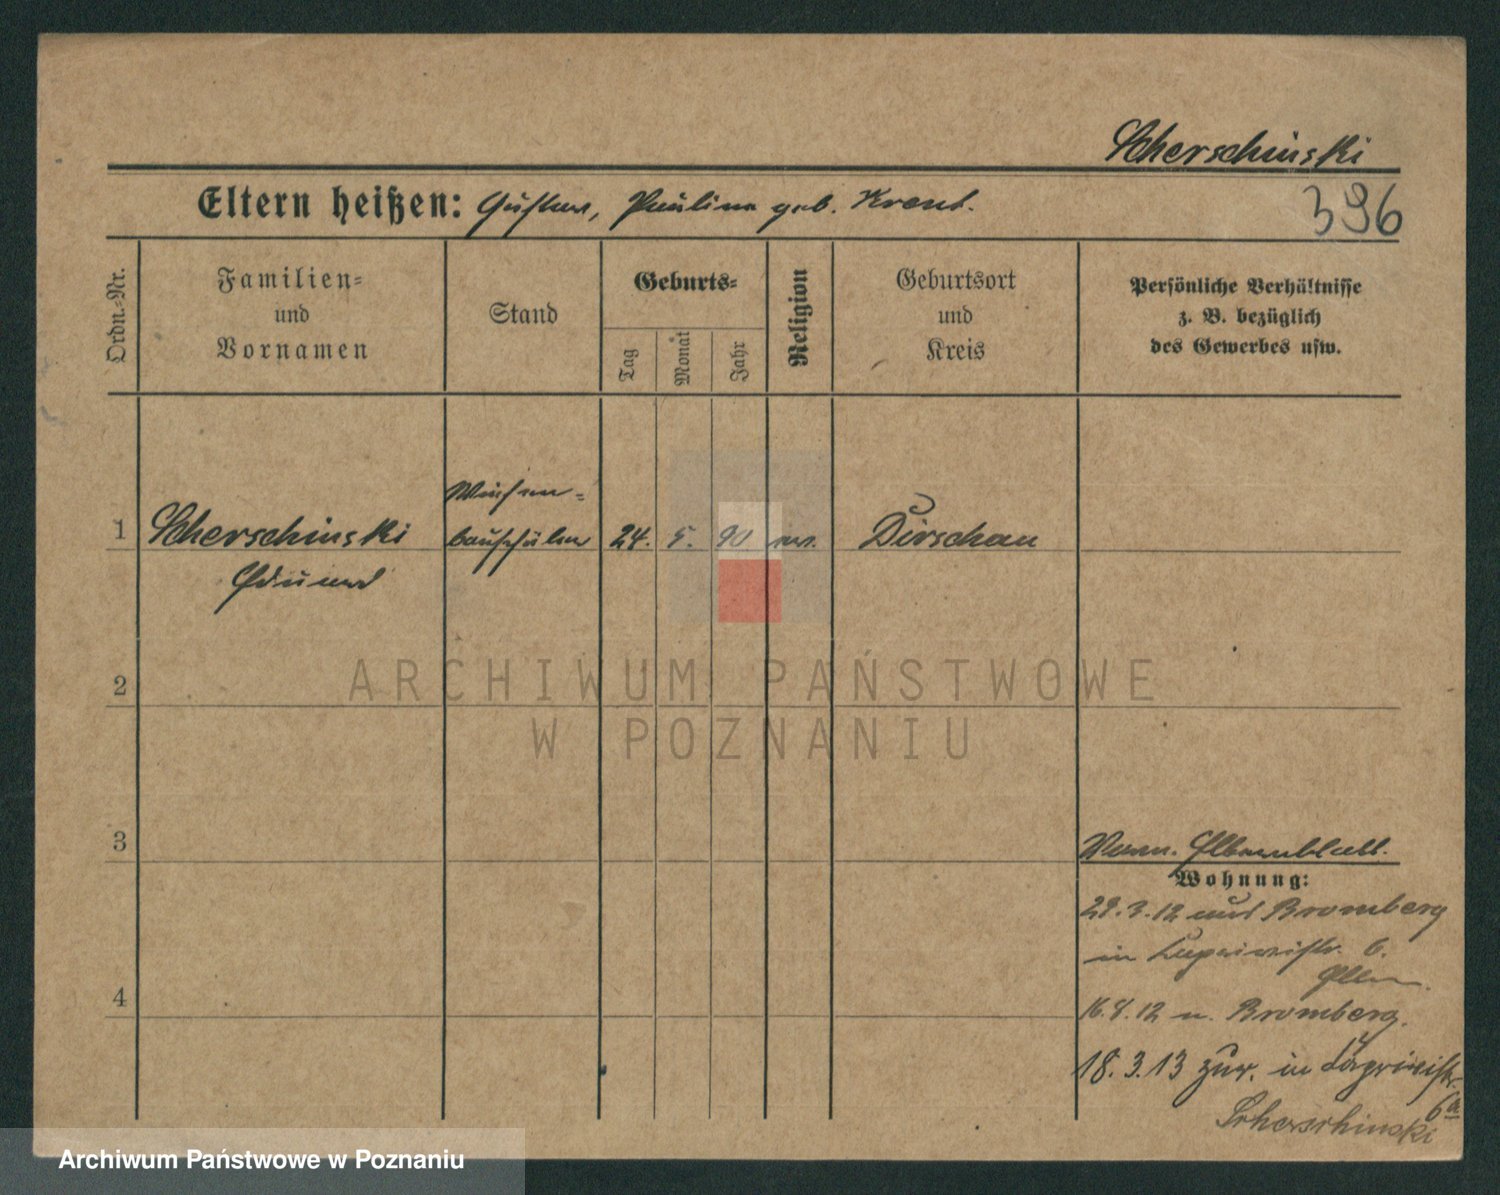 Scherschinski
Eltern heißen: Gustav, Pauline geb. Krent.
396
Ordn.-Nr.
Familien-
und
Vornamen
Stand
Geburts-
Tag
Monat
Jahr
Religion
Geburtsort
und
Kreis
Persönliche Verhältnisse
z. B. bezüglich
des Gewerbes usw.
1
Scherschinski
Eduard
Wiesen-
bauschüler
24.
5.
90
ev.
Dirschau
2
3
4
Wohnung:
3.12 Bromberg
in 6.
16.8.12 n. Bromberg.
18.3.13 zur. in
6a
Scherschinski
ARCHIWUM PAŃSTWOWE
W POZNANIU
Archiwum Państwowe w Poznaniu